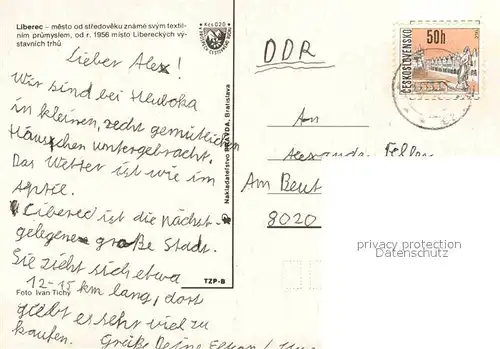 Liberec – město od středověku známé svým textil-
ním průmyslem, od r. 1956 místo Libereckých vý-
stavních trhů
Kčs 0,20
Lieber Alex!
Wir sind bei
in kleinen, recht gemütlichen
Häuschen untergebracht.
Das Wetter ist wie im
April.
(Liberec) ist die nächst-
gelegene große Stadt.
Sie zieht sich etwa
12-15 km lang, dort
giebt es sehr viel zu
kaufen. Grüße Deine Eltern!
Foto Ivan Tichý
Nakladateľstvo PRAVDA, Bratislava
TZP-B
DDR
ČESKOSLOVENSKO
50h
An
Am
8020
privacy protection
Datenschutz